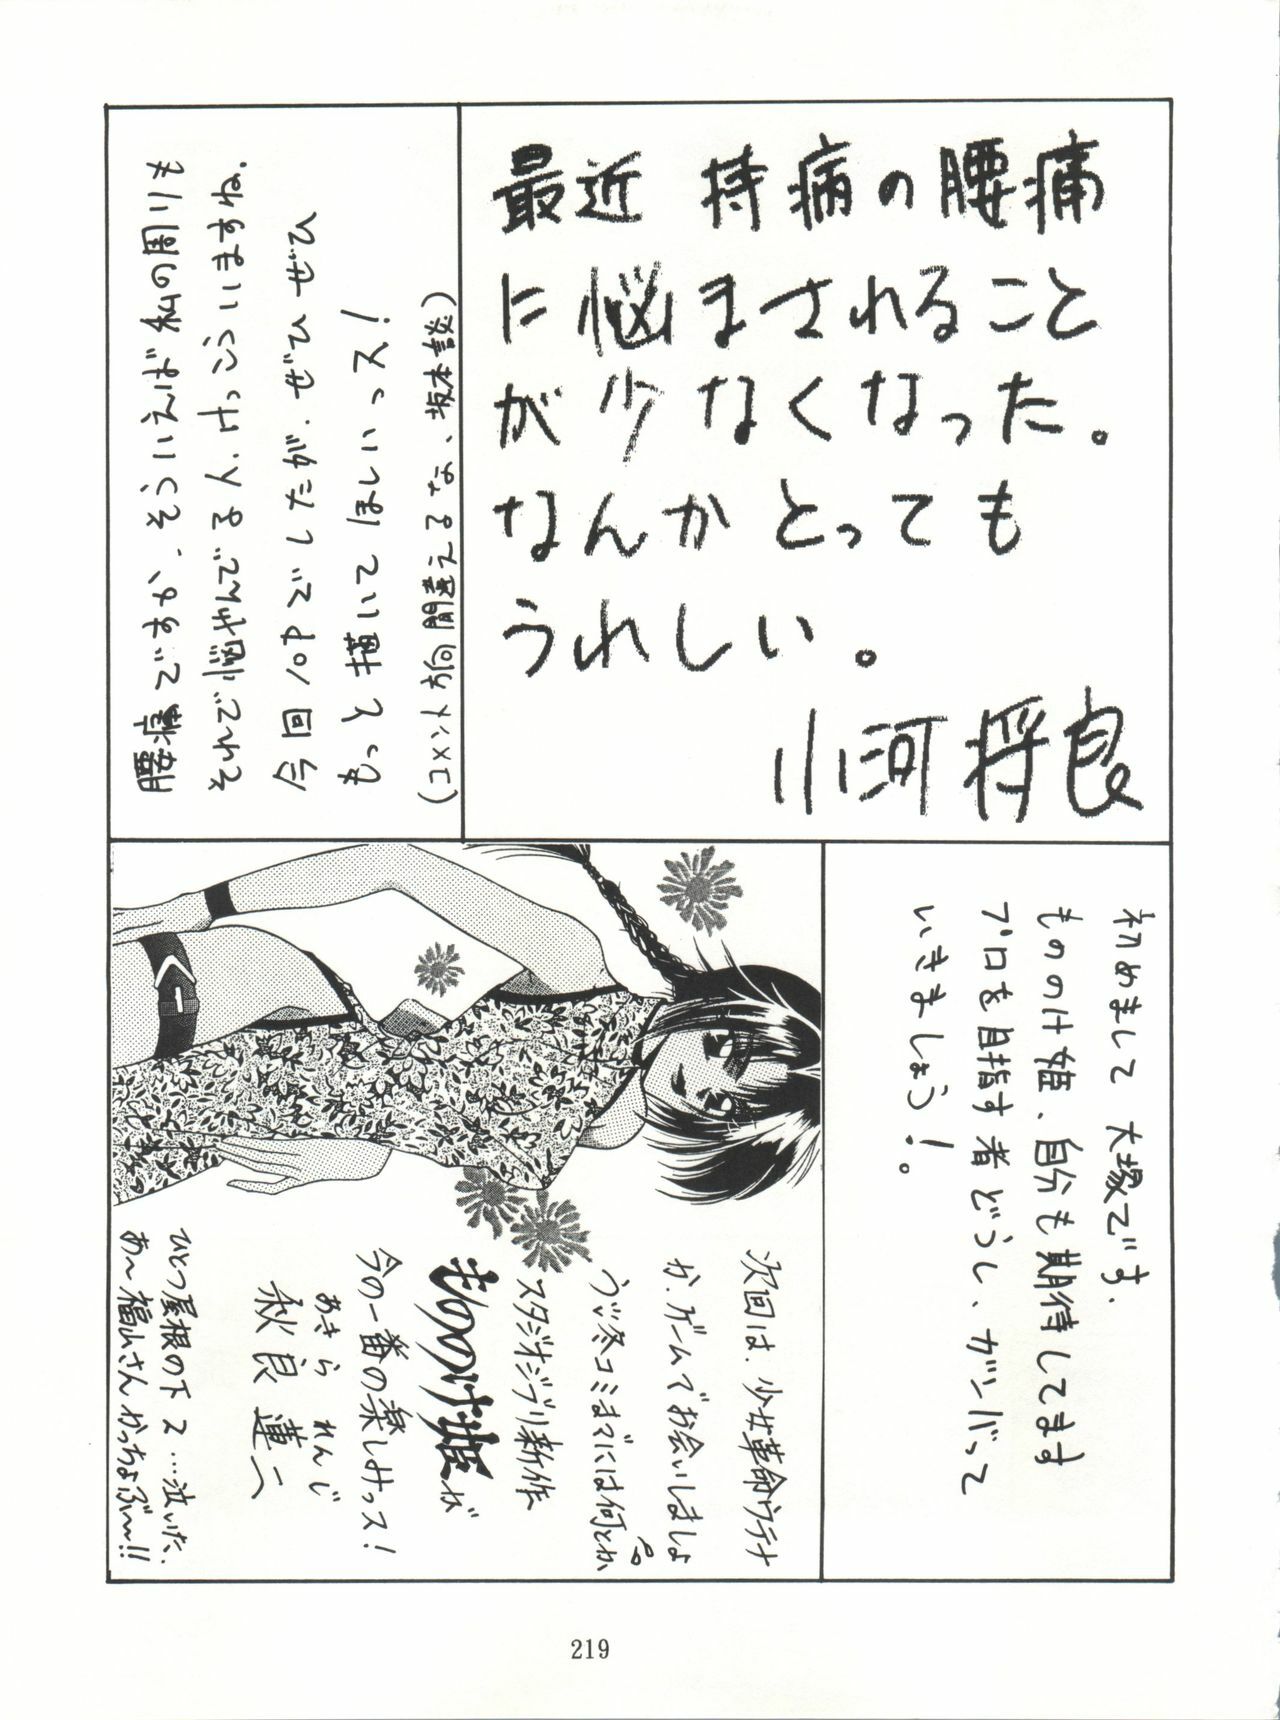 最近 持病の腰痛
に悩まされること
が少なくなった。
なんかとっても
うれしい。
小河将良
腰痛ですか、そういえば私の周りも
それで悩やんでる人、けっこういますね.
今回10Pでしたが、ぜひぜひ
もっと描いてほしいっス!
(コメント方向間違えるな、坂本談)
次回は、少女革命ウテナ
か、ゲームでお会いしましょ
う、冬コミまでには何とか
スタジオジブリ新作
もののけ姫が
今の一番の楽しみっス!
あきら れんじ
秋良 蓮二
ひとつ屋根の下 2 …泣いた、
あ〜福山さんかっちょぶ〜!!
初めまして 大塚です.
もののけ姫、自分も期待してます
プロを目指す者どうし、ガンバって
いきましょう!。
219